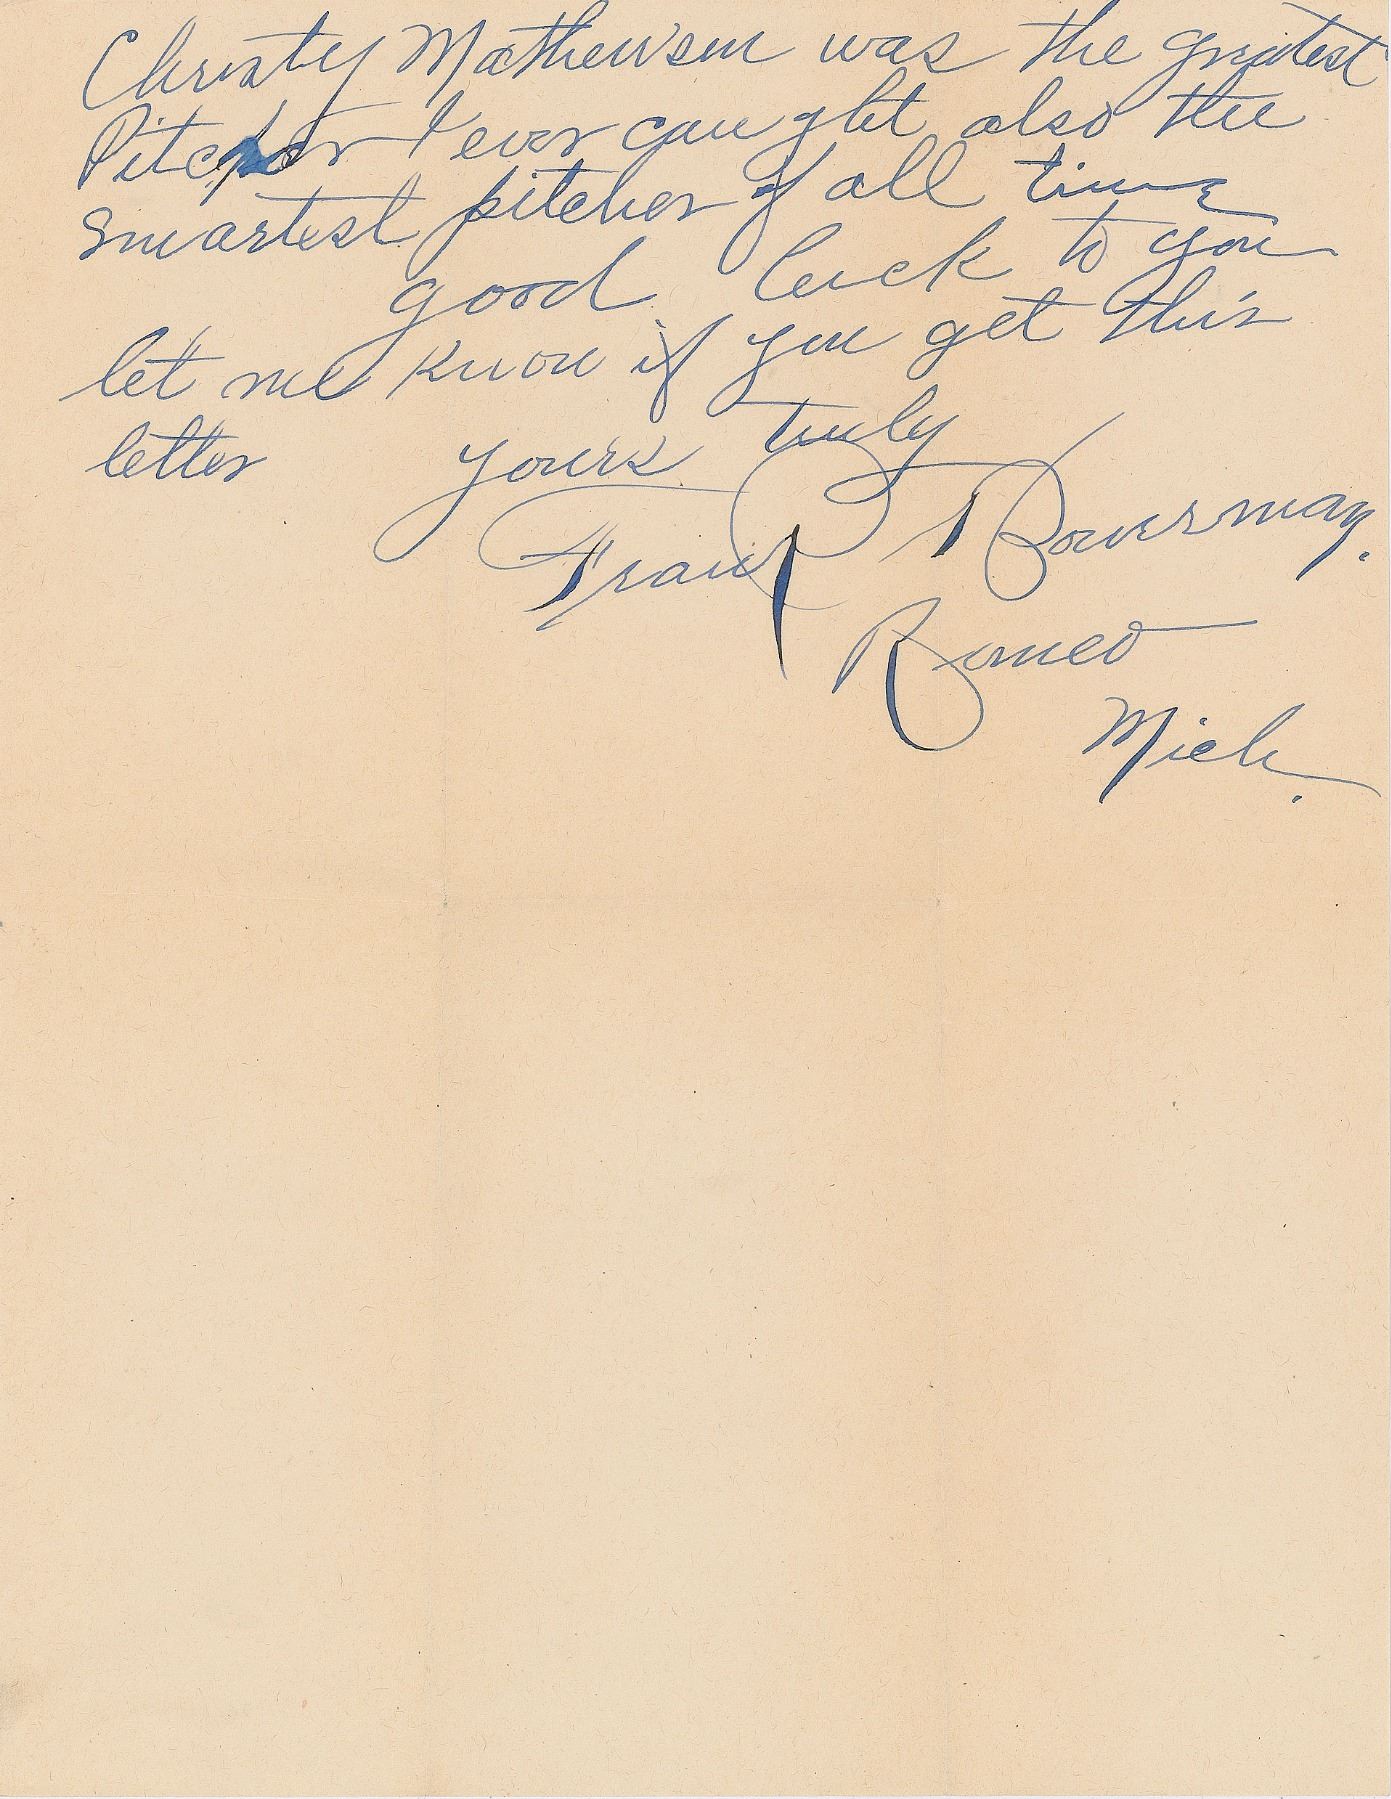 Christy Mathewson was the greatest
Pitcher I ever caught also the
smartest pitcher of all time
good luck to you
let me know if you get this
letter yours truly
Frank Bowerman.
Romeo
Mich.